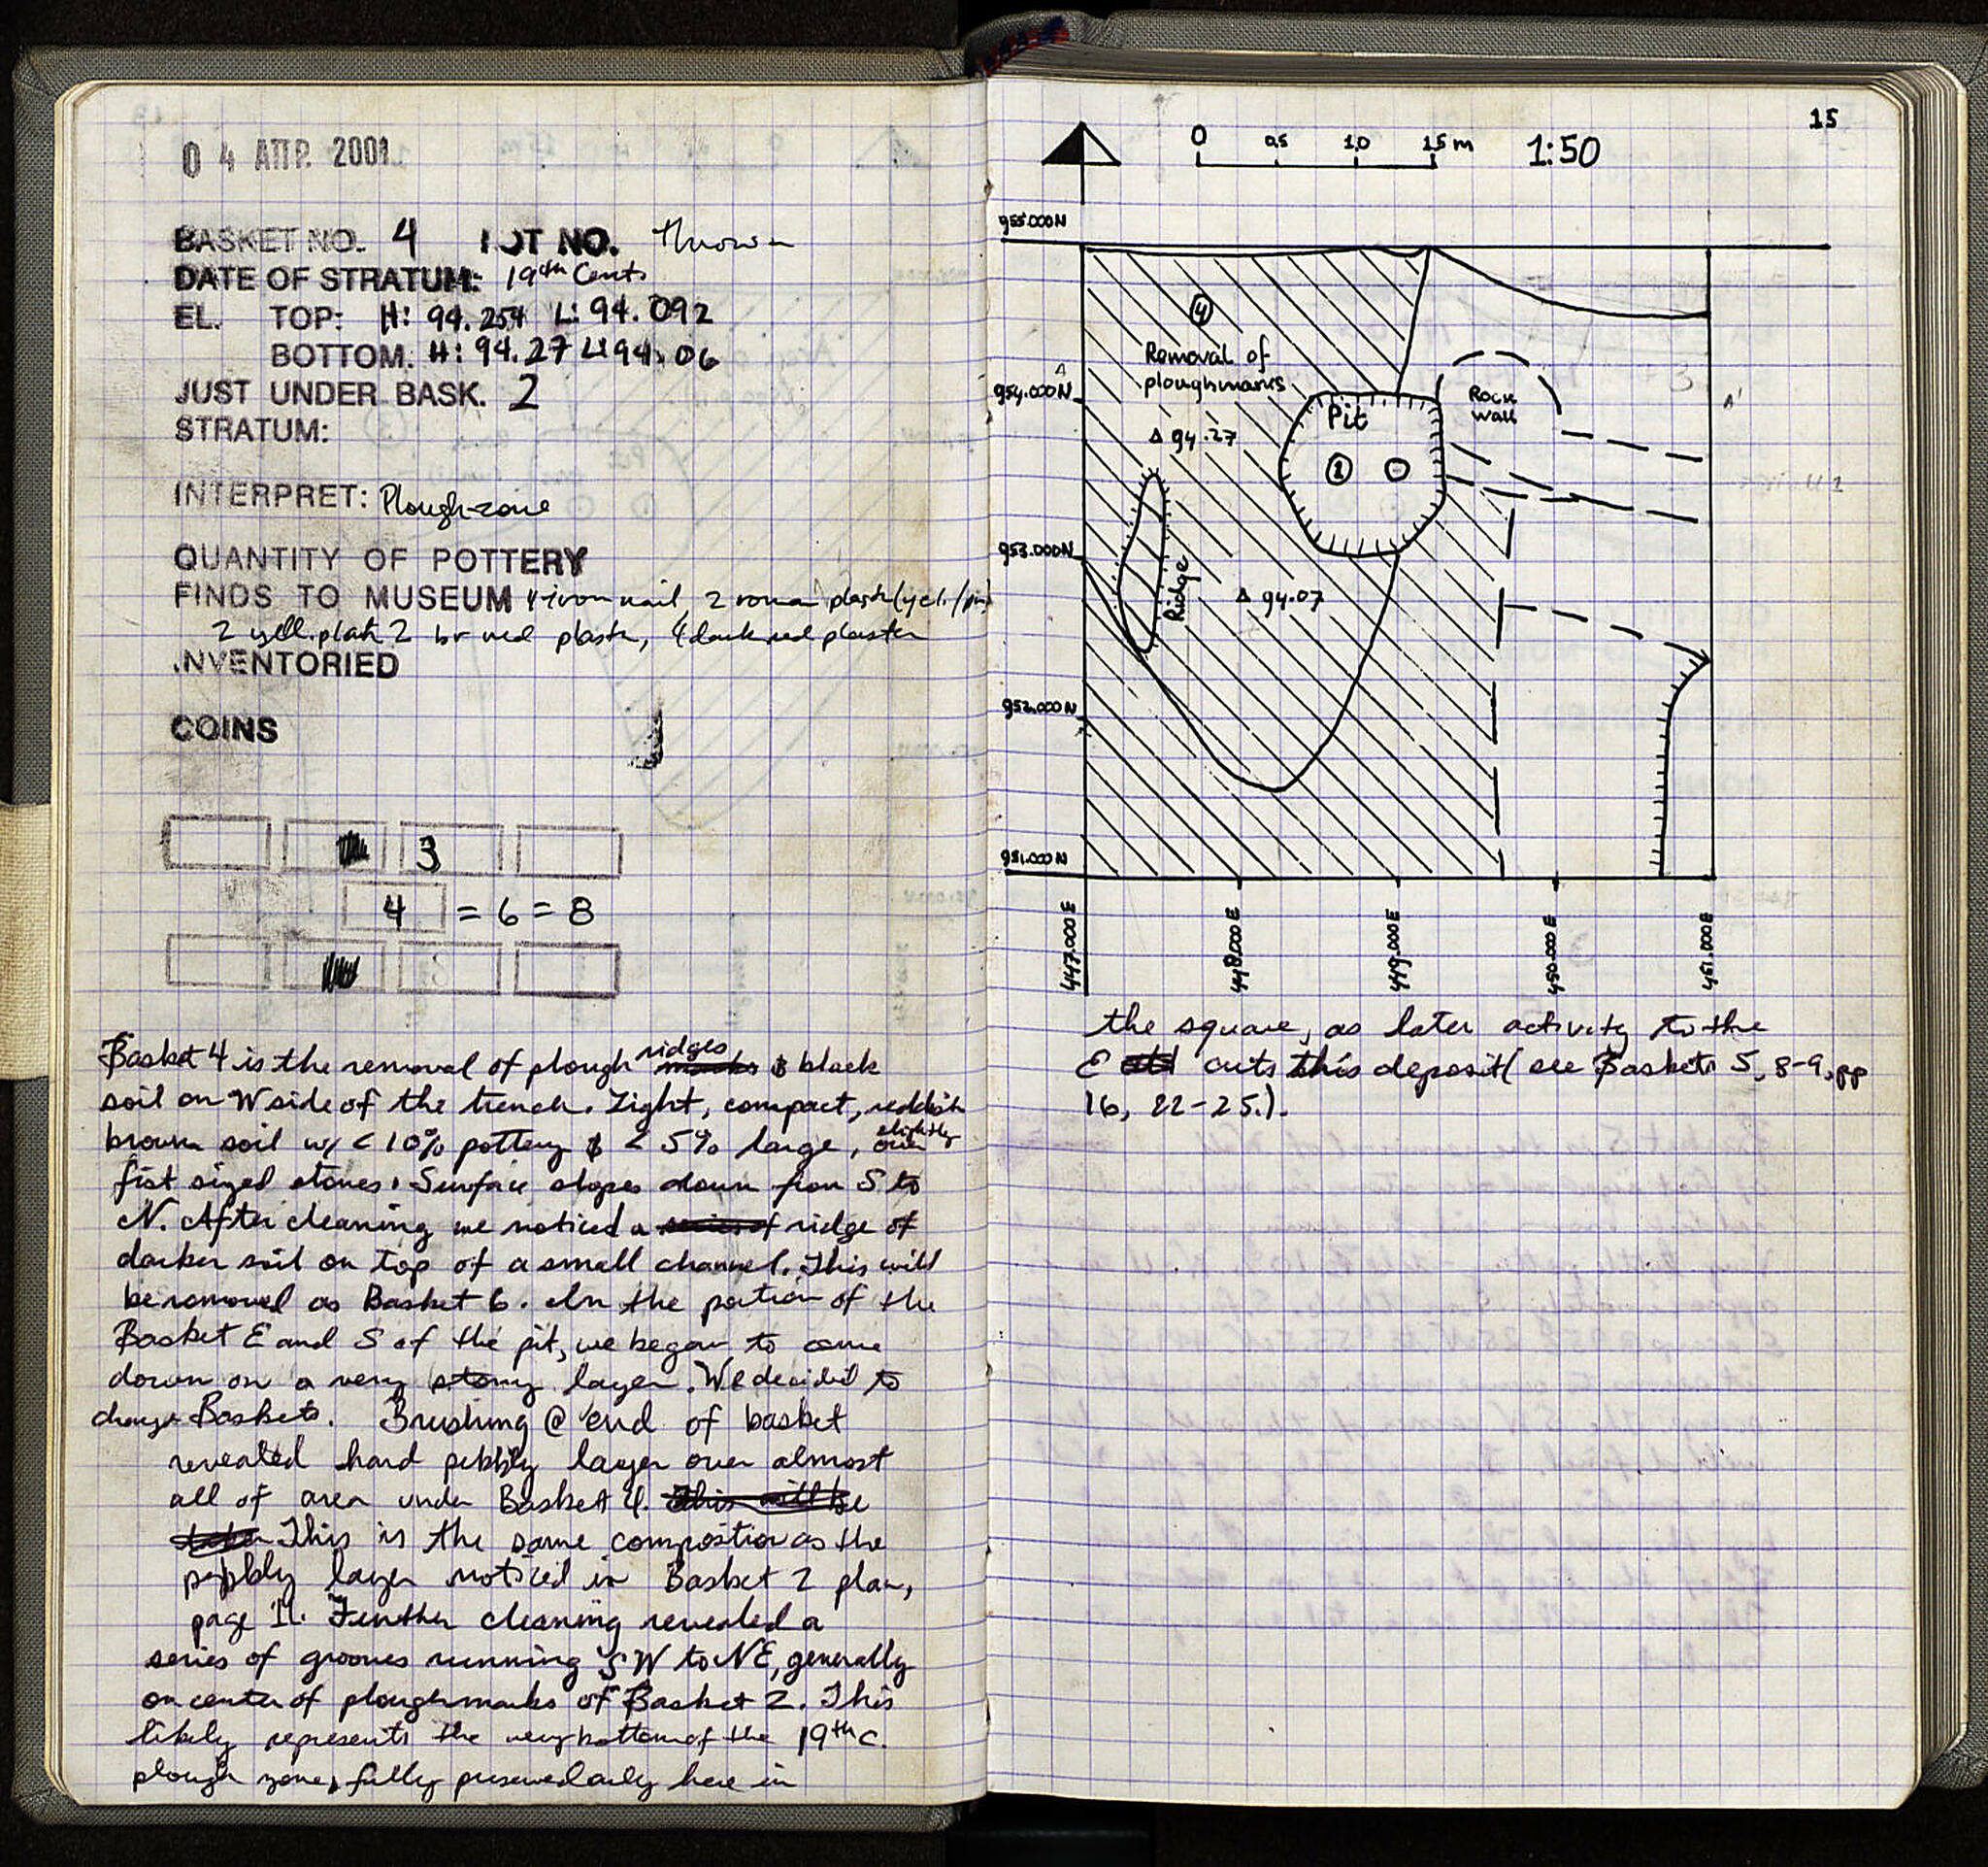 04 ΑΠΡ. 2001
BASKET NO. 4 LOT NO. thrown
DATE OF STRATUM: 19th Cent.
EL. TOP: H: 94.254 L: 94.092
BOTTOM: H: 94.27 L: 94.06
JUST UNDER BASK. 2
STRATUM:
INTERPRET: Plough-zone
QUANTITY OF POTTERY
FINDS TO MUSEUM iron nail, 2
2 yell. 2 red , 4 dark red plaster
INVENTORIED
COINS
3
4 = 6 = 8
Basket 4 is the removal of plough ridges & black
soil on W side of the trench. Light, compact, reddish
brown soil w/ < 10% pottery & < 5% large, slightly over
fist sized stones. Surface slopes down from S to
N. After cleaning we noticed a ridge of
darker soil on top of a small channel. This will
be removed as Basket 6. In the portion of the
Basket E and S of the pit, we began to come
down on a very stony layer. We decided to
change Baskets. Brushing @ end of basket
revealed hard pebbly layer over almost
all of area under Basket 4.
This is the same composition as the
pebbly layer noticed in Basket 2 plan,
page 11. Further cleaning revealed a
series of grooves running SW to NE, generally
on center of ploughmarks of Basket 2. This
likely represents the very bottom of the 19th c.
plough zone, fully preserved only here in
15
0 0.5 1.0 1.5 m 1:50
955.000 N
4
Removal of
ploughmarks
A
954.000 N
Rock
wall
A'
Pit
Δ 94.27
2
953.000 N
Ridge
Δ 94.07
952.000 N
951.000 N
447.000 E
448.000 E
449.000 E
450.000 E
451.000 E
the square, as later activity to the
E cuts this deposit (see Baskets 5, 8-9, pp
16, 22-25.).